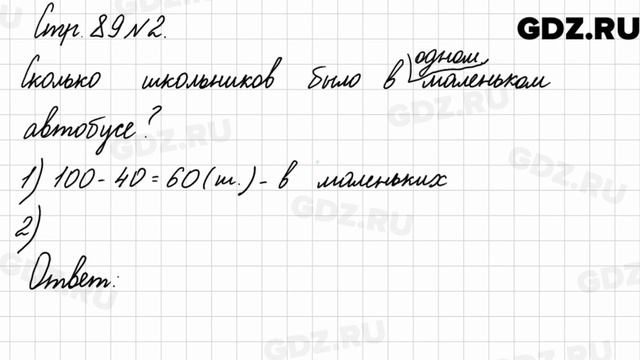 GDZ.RU
Стр. 89 №2.
Сколько школьников было в одном маленьком
автобусе?
1) 100 - 40 = 60 (ш.) - в маленьких
2)
Ответ:
GDZ.RU
GDZ.RU
GDZ.RU
GDZ.RU
GDZ.RU
GDZ.RU